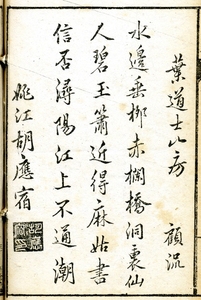 葉道士山房 顧況
水邊垂柳赤欄橋洞裏仙
人碧玉簫近得麻姑書
信否潯陽江上不通潮
姚江胡應宿